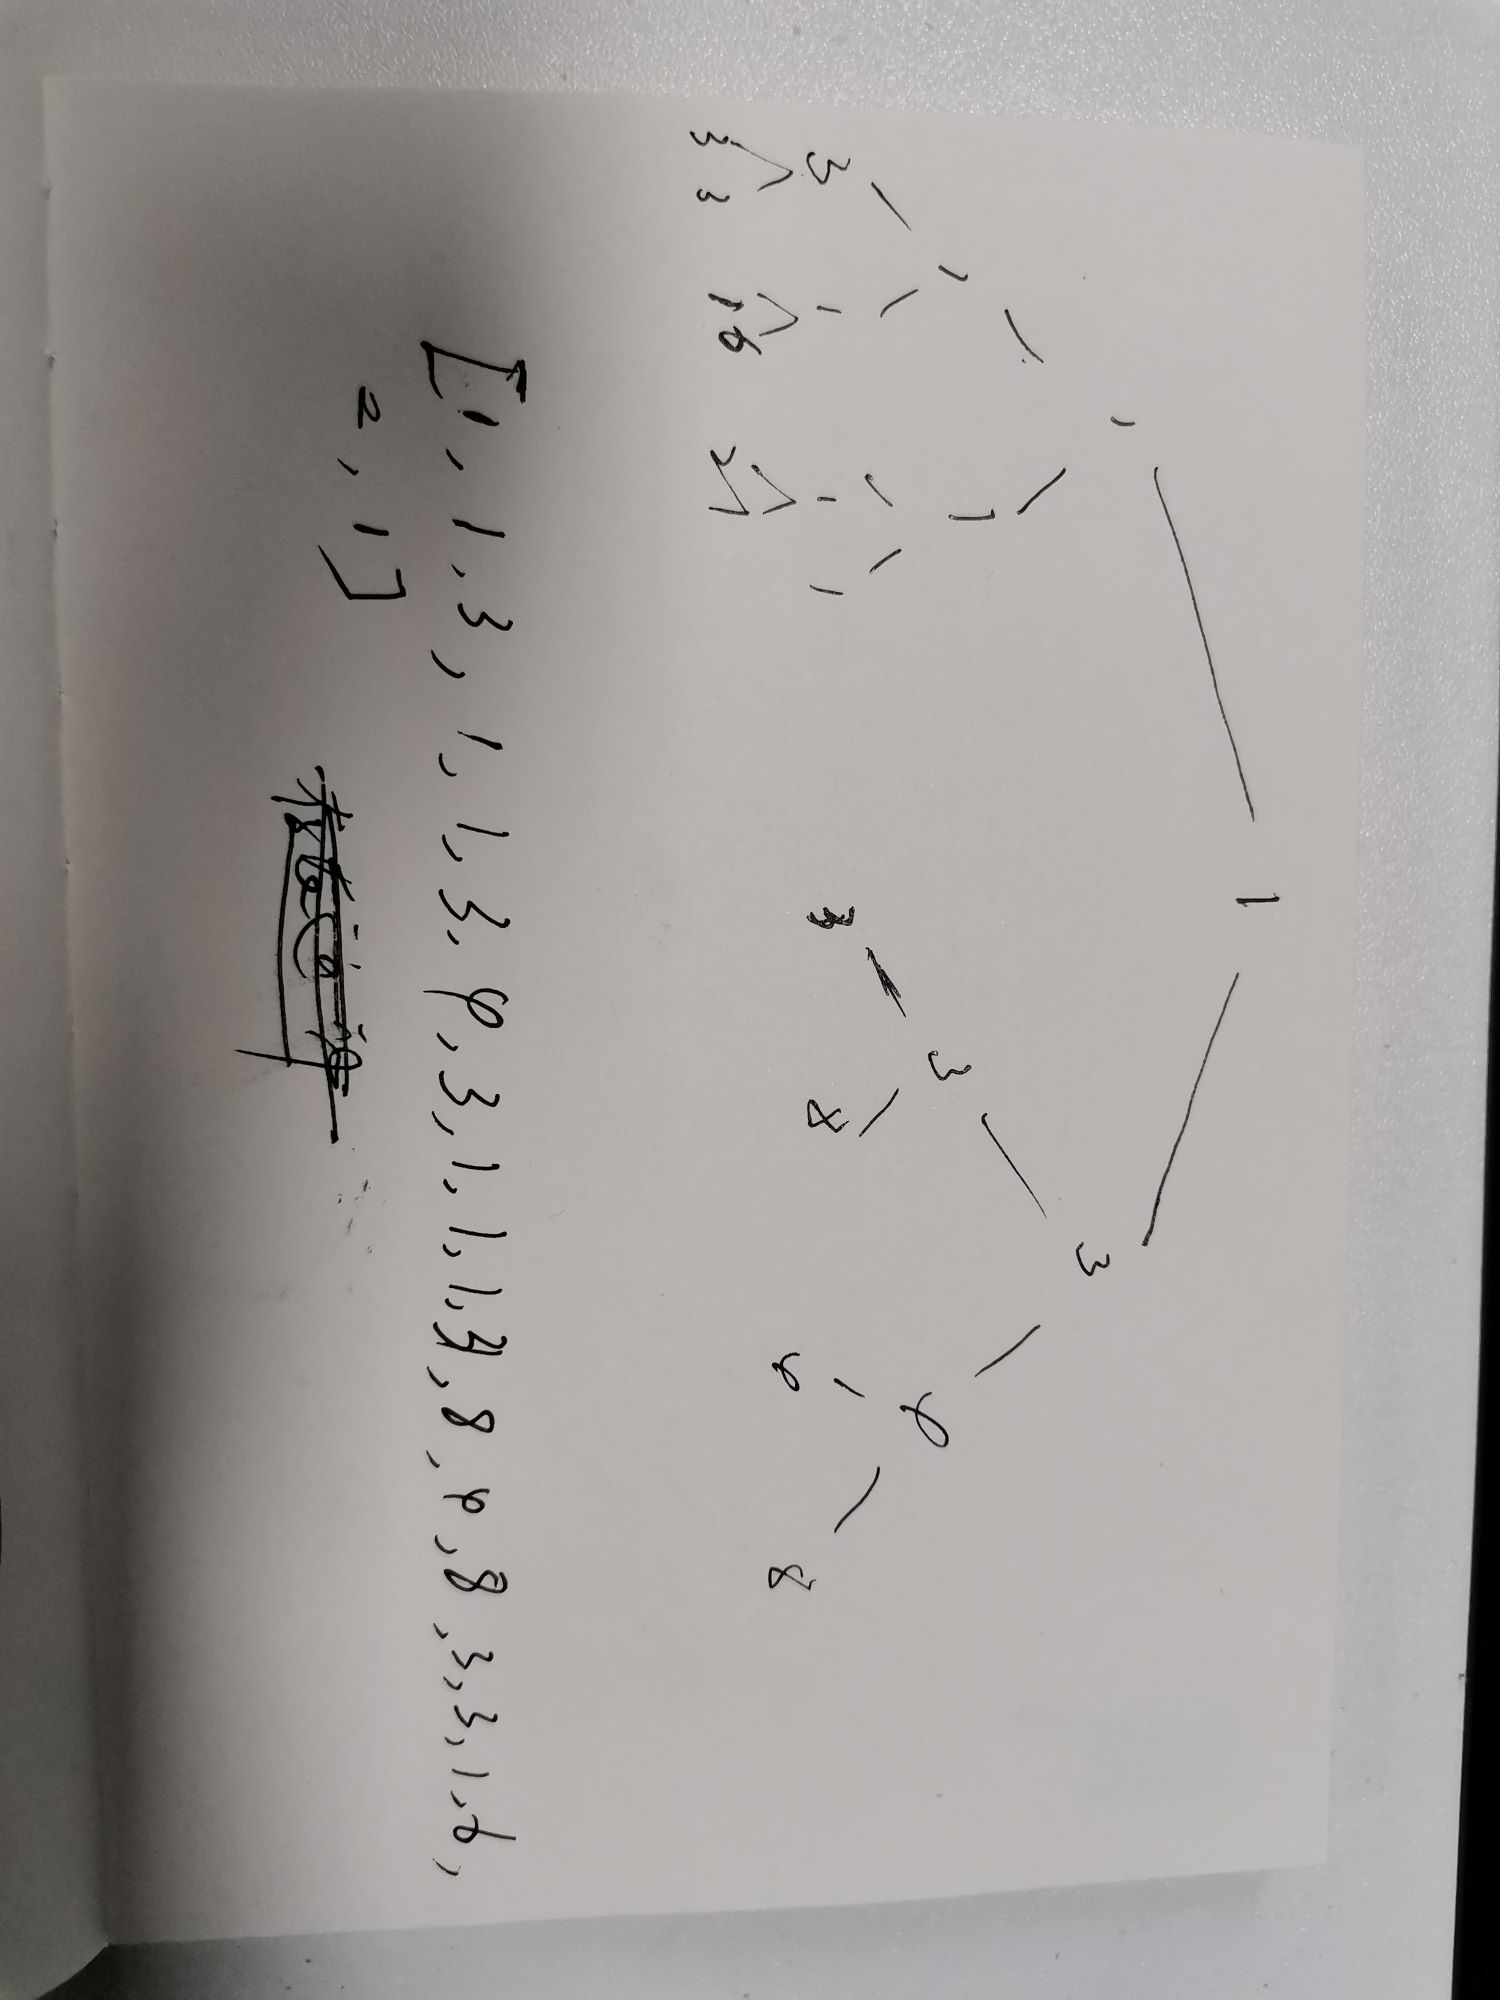 1
1 3
1 1 3 4
3 1 1 1 3 8 4 8
3 3 1 6 2 1
[1, 1, 3, 1, 1, 3, 4, 3, 1, 1, 1, 3, 8, 4, 8, 3, 3, 1, 6,
2, 1]